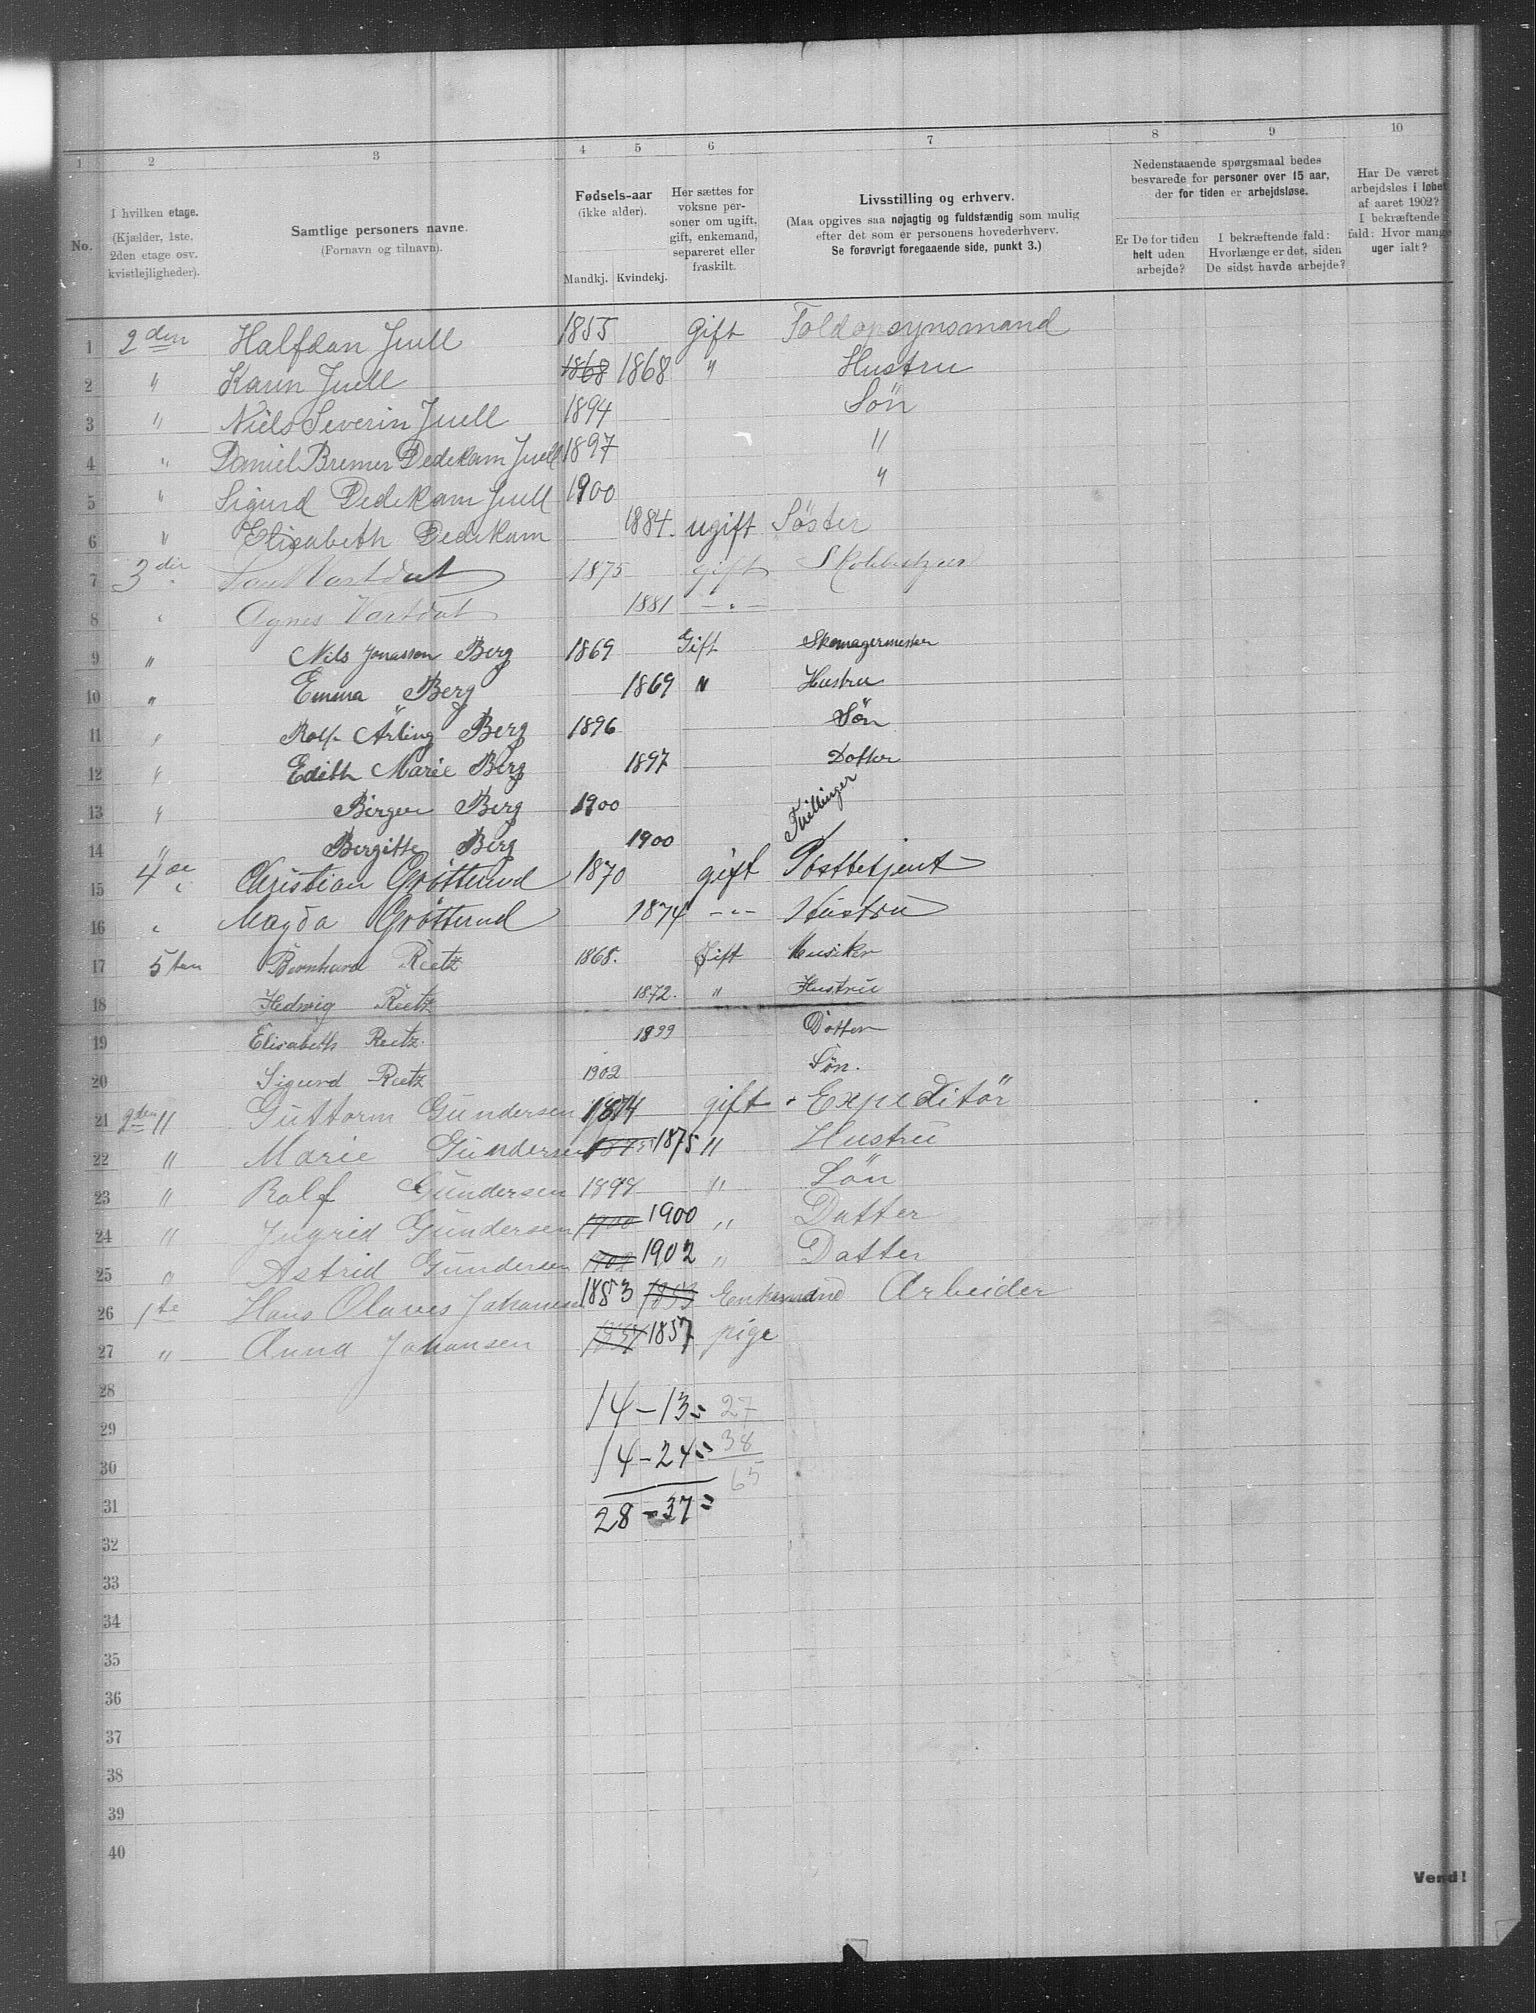 1 2 3 4 5 6 7 8 9 10
No.
I hvilken etage. (Kjælder, 1ste. 2den etage osv. kvistlejligheder).
Samtlige personers navne. (Fornavn og tilnavn).
Fødsels-aar (ikke alder). Mandkj. Kvindekj.
Her sættes for voksne personer om ugift, gift, enkemand, separeret eller fraskilt.
Livsstilling og erhverv. (Maa opgives saa nøjagtig og fuldstændig som mulig efter det som er personens hovederhverv. Se forøvrigt foregaaende side, punkt 3.)
Nedenstaaende spørgsmaal bedes besvarede for personer over 15 aar, der for tiden er arbejdsløse.
Er De for tiden helt uden arbejde?
I bekræftende fald: Hvorlænge er det, siden De sidst havde arbejde?
Har De været arbejdsløs i løbet af aaret 1902? I bekræftende fald: Hvor mange uger ialt?
1 2den Halfdan Juell 1855 Gift Toldopsynsmand
2 " Karin Juell 1868 1868 " Hustru
3 " Niels Severin Juell 1894 Søn
4 " Daniel Bremer Dedekam Juell 1897 "
5 " Sigurd Dedekam Juell 1900 "
6 " Elisabeth Dedekam 1884. ugift Søster
7 3die 1875 gift
8 " Agnes 1881 - " -
9 " Nils Jonasson Berg 1869 Gift Skomagermester
10 " Emma Berg 1869 " Hustru
11 " Rolf Arling Berg 1896 Søn
12 " Edith Marie Berg 1897 Dotter
13 " Birger Berg 1900 Tvillinger
14 " Bergitte Berg 1900
15 4de Christian Grøttund 1870 gift Postbetjent
16 " Magda Grøttund 1874 - " - Hustru
17 5ten Bernhard Reetz 1868. Gift Musiker
18 Hedwig Reetz 1872. " Hustru
19 Elisabeth Reetz. 1899 Dotter
20 Sigurd Reetz 1902 Søn.
21 2den " Guttorm Gundersen 1874 gift Expeditør
22 " Marie Gundersen 1875 1875 " Hustru
23 " Rolf Gundersen 1898 " Søn
24 " Ingrid Gundersen 1900 1900 " Datter
25 " Astrid Gundersen 1902 1902 " Datter
26 1te Hans Olaves Johansen 1853 1853 Enkemand Arbeider
27 " Anna Johansen 1857 1857 pige
28 14 - 13 = 27
29
30 14 - 24 = 38
31 28 - 37 = 65
32
33
34
35
36
37
38
39
40
Vend!